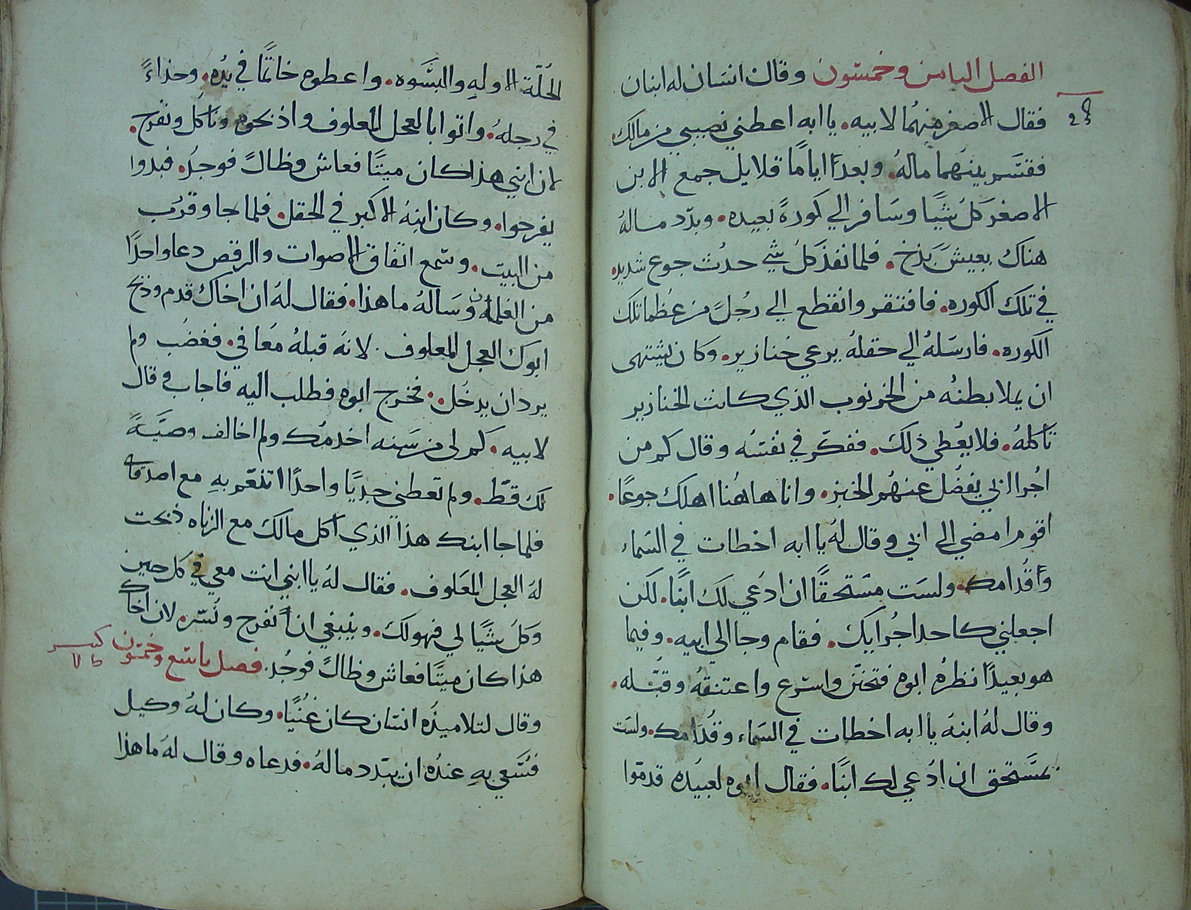 الفصل الثامن وخمسون وقال انسان له ابنان
فقال الاصغر منهما لابيه. يا ابه اعطني نصيبي من مالك
فقسم بينهما ماله. وبعد اياما قلايل جمع الابن
الاصغر كل شيا وسافر الي كورة بعيده. وبدد ماله
هناك بعيش بذخ. فلما نفذ كل شي حدث جوع شديد
في تلك الكوره. فافتقر وانقطع الي رجل من عظما تلك
الكوره. فارسله الي حقله يرعي خنازير. وكان يشتهى
ان يملا بطنه من الخرنوب الذي كانت الخنازير
تاكله. فلا يعطي ذلك. ففكر في نفسه وقال كم من
اجرا ابي يفضل عنهم الخبز. وانا هاهنا اهلك جوعا.
اقوم امضي الى ابي وقال له يا ابه اخطات في السماء
وأقدامك. ولست مستحقا ان ادعي لك ابنا. لكن
اجعلني كاحد اجرايك. فقام وجا الي ابيه. وفيما
هو بعيدا نظره ابوه فتحنن واسرع واعتنقه وقبله.
وقال له ابنه يا ابه اخطات في السماء وقدامك. ولست
بمستحق ان ادعي لك ابنا. فقال ابوه لعبيده قدموا
الحلة الاوله والبسوه. واعطوه خاتما في يده. وحذاء
في رجله. واتوا بالعجل المعلوف واذبحوه وناكل ونفرح.
لان ابني هذا كان ميتا فعاش وظالا فوجد. فبدوا
يفرحوا. وكان ابنه الاكبر في الحقل. فلما جا وقرب
من البيت. وسمع اتفاق الاصوات والرقص دعا واحدا
من الغلمان وساله ما هذا. فقال له ان اخاك قدم وذبح
ابوك العجل المعلوف. لانه قبله معافي. فغضب ولم
يرد ان يدخل. فخرج ابوه فطلب اليه فاجاب وقال
لابيه. كم لي من سنه اخدمك ولم اخالف وصية
لك قط. ولم تعطني جديا واحدا اتنعم به مع اصدقاي
فلما جا ابنك هذا الذي أكل مالك مع الزناه ذبحت
له العجل المعلوف. فقال له يا ابني انت معي في كل حين
وكل شيا لي فهو لك. وينبغي ان نفرح ونسر. لان اخاك
هذا كان ميتا فعاش وظالا فوجد. فصل تاسع وخمسون
وقال لتلاميذه انسان كان غنيا. وكان له وكيل
فسعي به عنده ان يبدد ماله. فدعاه وقال له ما هذا